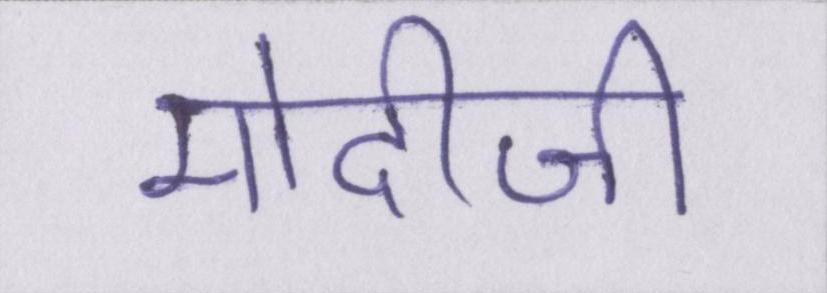 मोदीजी